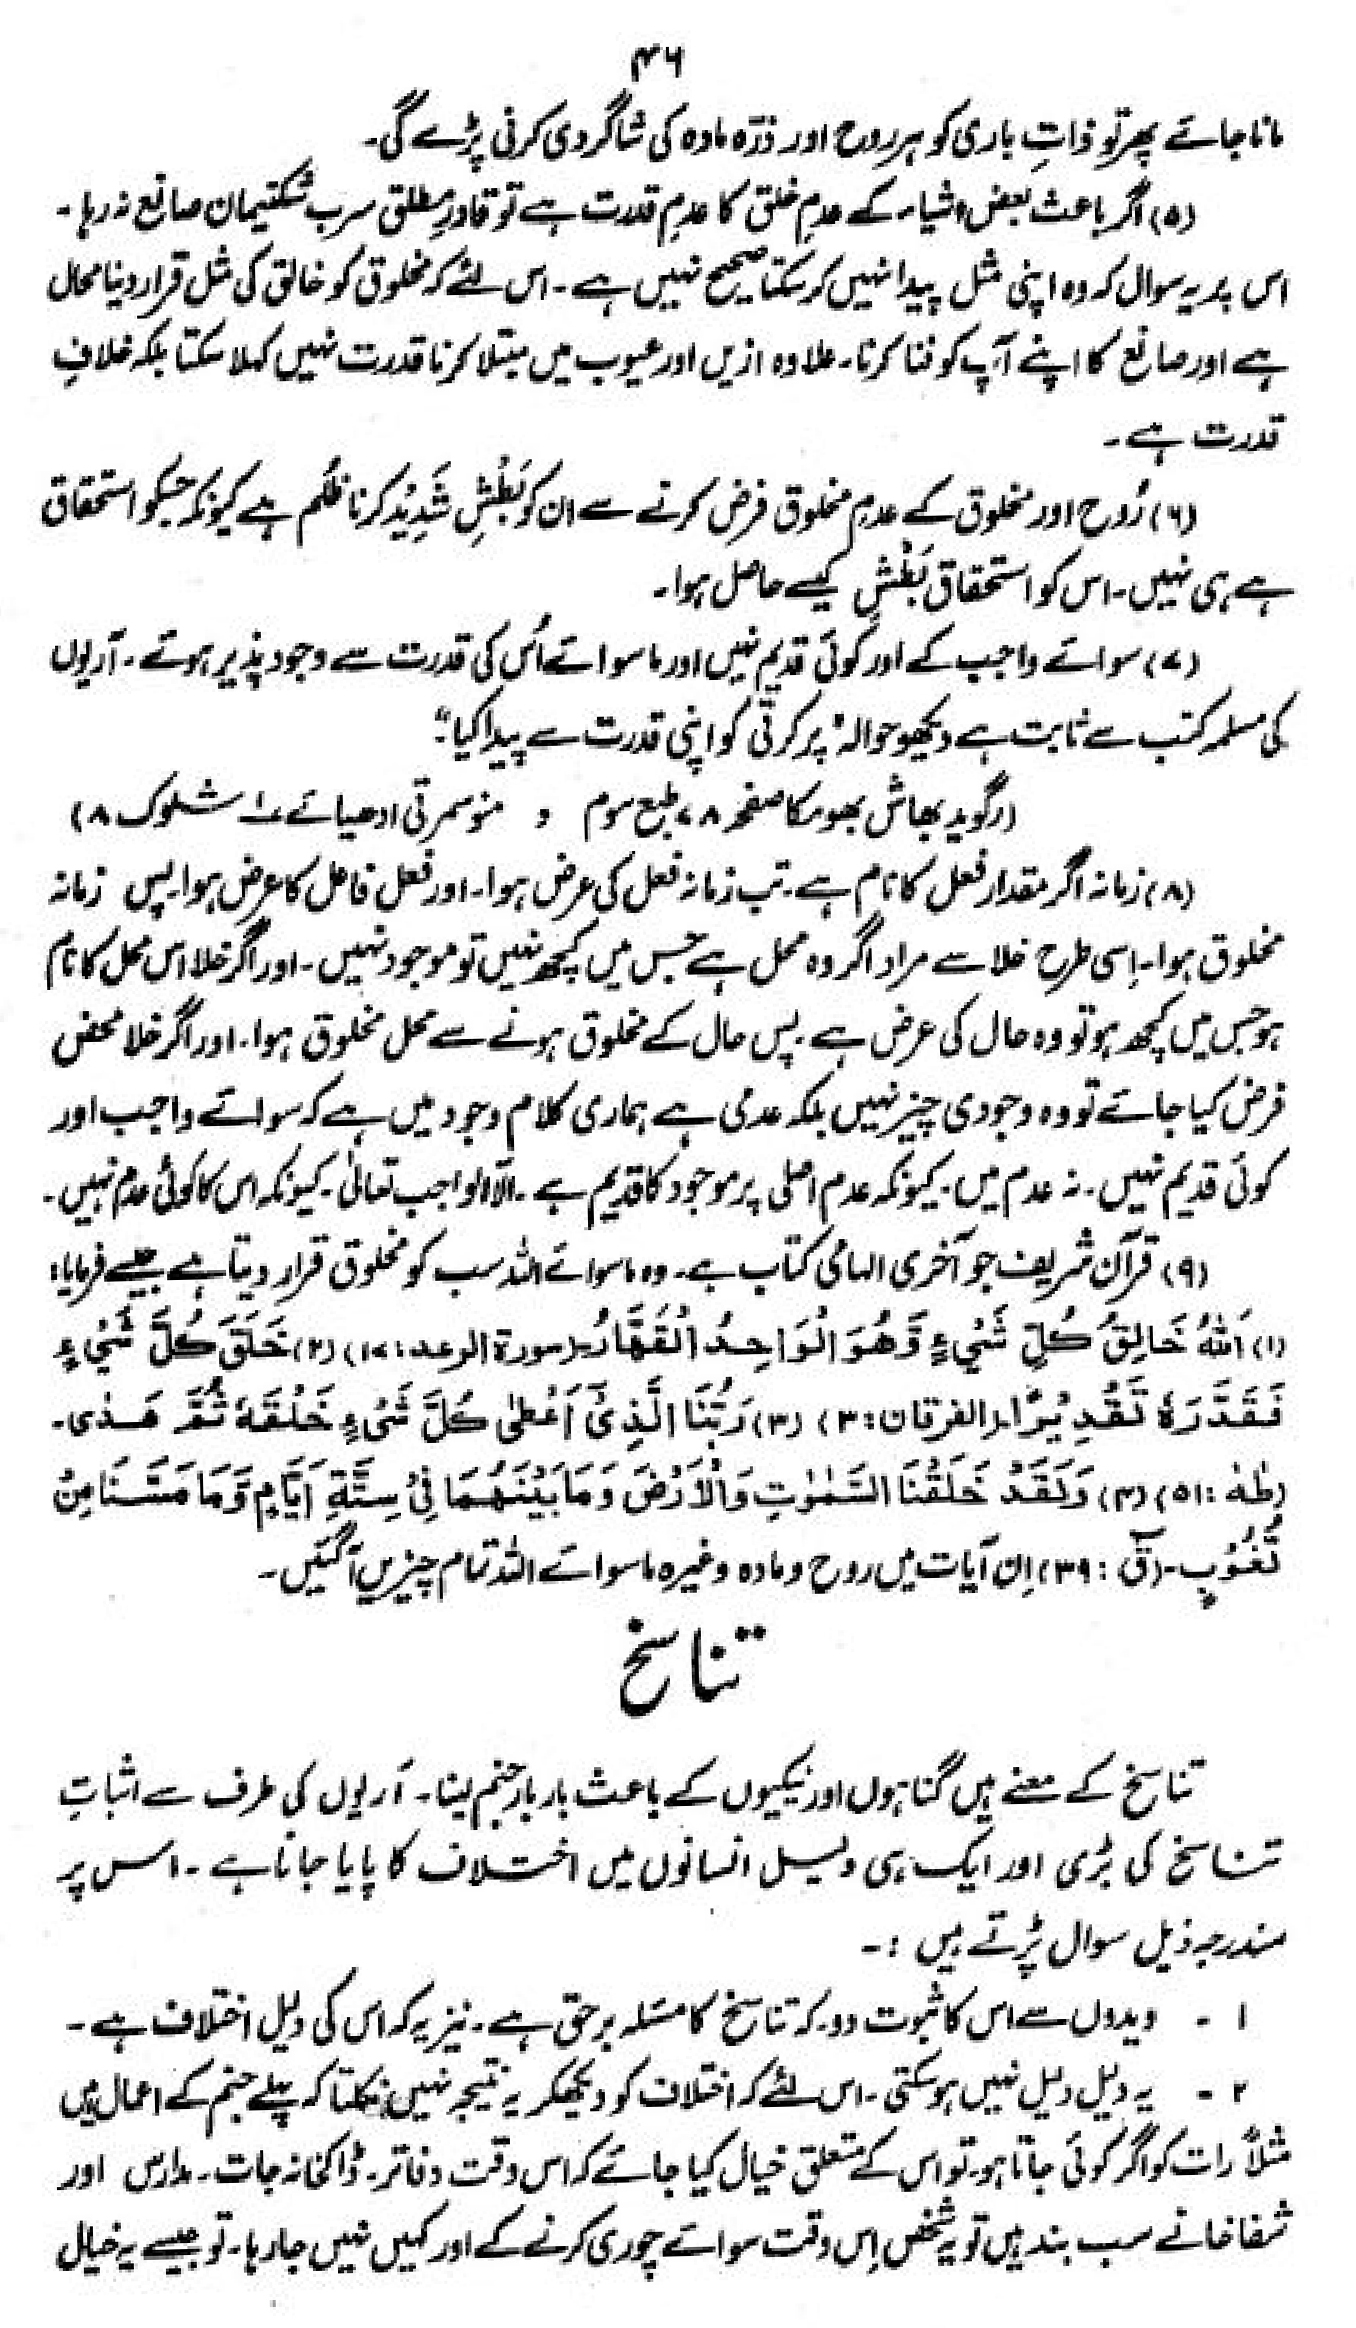 ۴۶
مانا جائے پھر تو ذاتِ باری کو ہر روح اور ذرّہ مادہ کی شاگردی کرنی پڑے گی۔
(۵) اگر باعث بعض اشیاء کے عدمِ خلق کا عدمِ قدرت ہے تو قادرِ مطلق سرب شکتیمان صانع نہ رہا۔
اس پر یہ سوال کہ وہ اپنی مثل پیدا نہیں کر سکتا صحیح نہیں ہے۔ اس لئے کہ مخلوق کو خالق کی مثل قرار دینا محال
ہے اور صانع کا اپنے آپ کو فنا کرنا۔ علاوہ ازیں اور عیوب میں مبتلا کرنا قدرت نہیں کہلا سکتا بلکہ خلافِ
قدرت ہے۔
(۶) رُوح اور مخلوق کے عدم مخلوق فرض کرنے سے ان کو بَطْشِ شَدِیْد کرنا ظُلم ہے کیونکہ جسکو استحقاق
ہے ہی نہیں۔ اس کو استحقاق بَطْشِ کیسے حاصل ہوا۔
(۷) سوائے واجب کے اور کوئی قدیم نہیں اور ماسوائے اُس کی قدرت سے وجود پذیر ہوئے۔ آریوں
کی مسلمہ کتب سے ثابت ہے دیکھو حوالہ "پرکرتی کو اپنی قدرت سے پیدا کیا"۔
(رگوید بھاش بھومکا صفحہ ۷۸ طبع سوم و منوسمرتی ادھیائے ۱ شلوک ۸)
(۸) زمانہ اگر مقدار فعل کا نام ہے۔ تب زمانہ فعل کی عرض ہوا۔ اور فعل فاعل کا عرض ہوا۔ پس زمانہ
مخلوق ہوا۔ اِسی طرح خلا سے مراد اگر وہ محل ہے جس میں کچھ نہیں تو موجود نہیں۔ اور اگر خلا اس محل کا نام
ہو جس میں کچھ ہو تو وہ حال کی عرض ہے۔ پس حال کے مخلوق ہونے سے محل مخلوق ہوا۔ اور اگر خلا محض
فرض کیا جائے تو وہ وجودی چیز نہیں بلکہ عدمی ہے ہماری کلام وجود میں ہے کہ سوائے واجب اور
کوئی قدیم نہیں۔ نہ عدم میں۔ کیونکہ عدم اصلی ہر موجود کا قدیم ہے۔ الّا الواجب تعالیٰ۔ کیونکہ اس کا کوئی عدم نہیں۔
(۹) قرآن شریف جو آخری الہامی کتاب ہے۔ وہ ماسوائے اللہ سب کو مخلوق قرار دیتا ہے جیسے فرمایا:
(۱) اَللّٰهُ خَالِقُ كُلِّ شَیْءٍ وَّهُوَ الْوَاحِدُ الْقَهَّارُ (سورة الرعد: ۱۷) (۲) خَلَقَ كُلَّ شَیْءٍ
فَقَدَّرَهٗ تَقْدِیْرًا۔ (الفرقان: ۳) (۳) رَبُّنَا الَّذِیْ اَعْطٰی كُلَّ شَیْءٍ خَلْقَهٗ ثُمَّ هَدٰی۔
(طٰهٰ: ۵۱) (۴) وَلَقَدْ خَلَقْنَا السَّمٰوٰتِ وَالْاَرْضَ وَمَا بَیْنَهُمَا فِیْ سِتَّةِ اَیَّامٍ وَّمَا مَسَّنَا مِنْ
لُّغُوْبٍ۔ (قٓ: ۳۹) اِن آیات میں روح و مادہ وغیرہ ماسوائے اللہ تمام چیزیں آگئیں۔
تناسخ
تناسخ کے معنے ہیں گناہوں اور نیکیوں کے باعث بار بار جنم لینا۔ آریوں کی طرف سے اثباتِ
تناسخ کی بڑی اور ایک ہی دلیل انسانوں میں اختلاف کا پایا جانا ہے۔ اس پر
مندرجہ ذیل سوال پڑتے ہیں :۔
۱ - ویدوں سے اس کا ثبوت دو۔ کہ تناسخ کا مسئلہ برحق ہے۔ نیز یہ کہ اس کی دلیل اختلاف ہے۔
۲ - یہ دلیل دلیل نہیں ہو سکتی۔ اس لئے کہ اختلاف کو دیکھکر یہ نتیجہ نہیں نکلتا کہ پہلے جنم کے اعمال ہیں
مثلاً رات کو اگر کوئی جاتا ہو۔ تو اس کے متعلق خیال کیا جائے کہ اس وقت دفاتر۔ ڈاکخانہ جات۔ مدارس اور
شفاخانے سب بند ہیں تو یہ شخص اِس وقت سوائے چوری کرنے کے اور کہیں نہیں جا رہا۔ تو جیسے یہ خیال